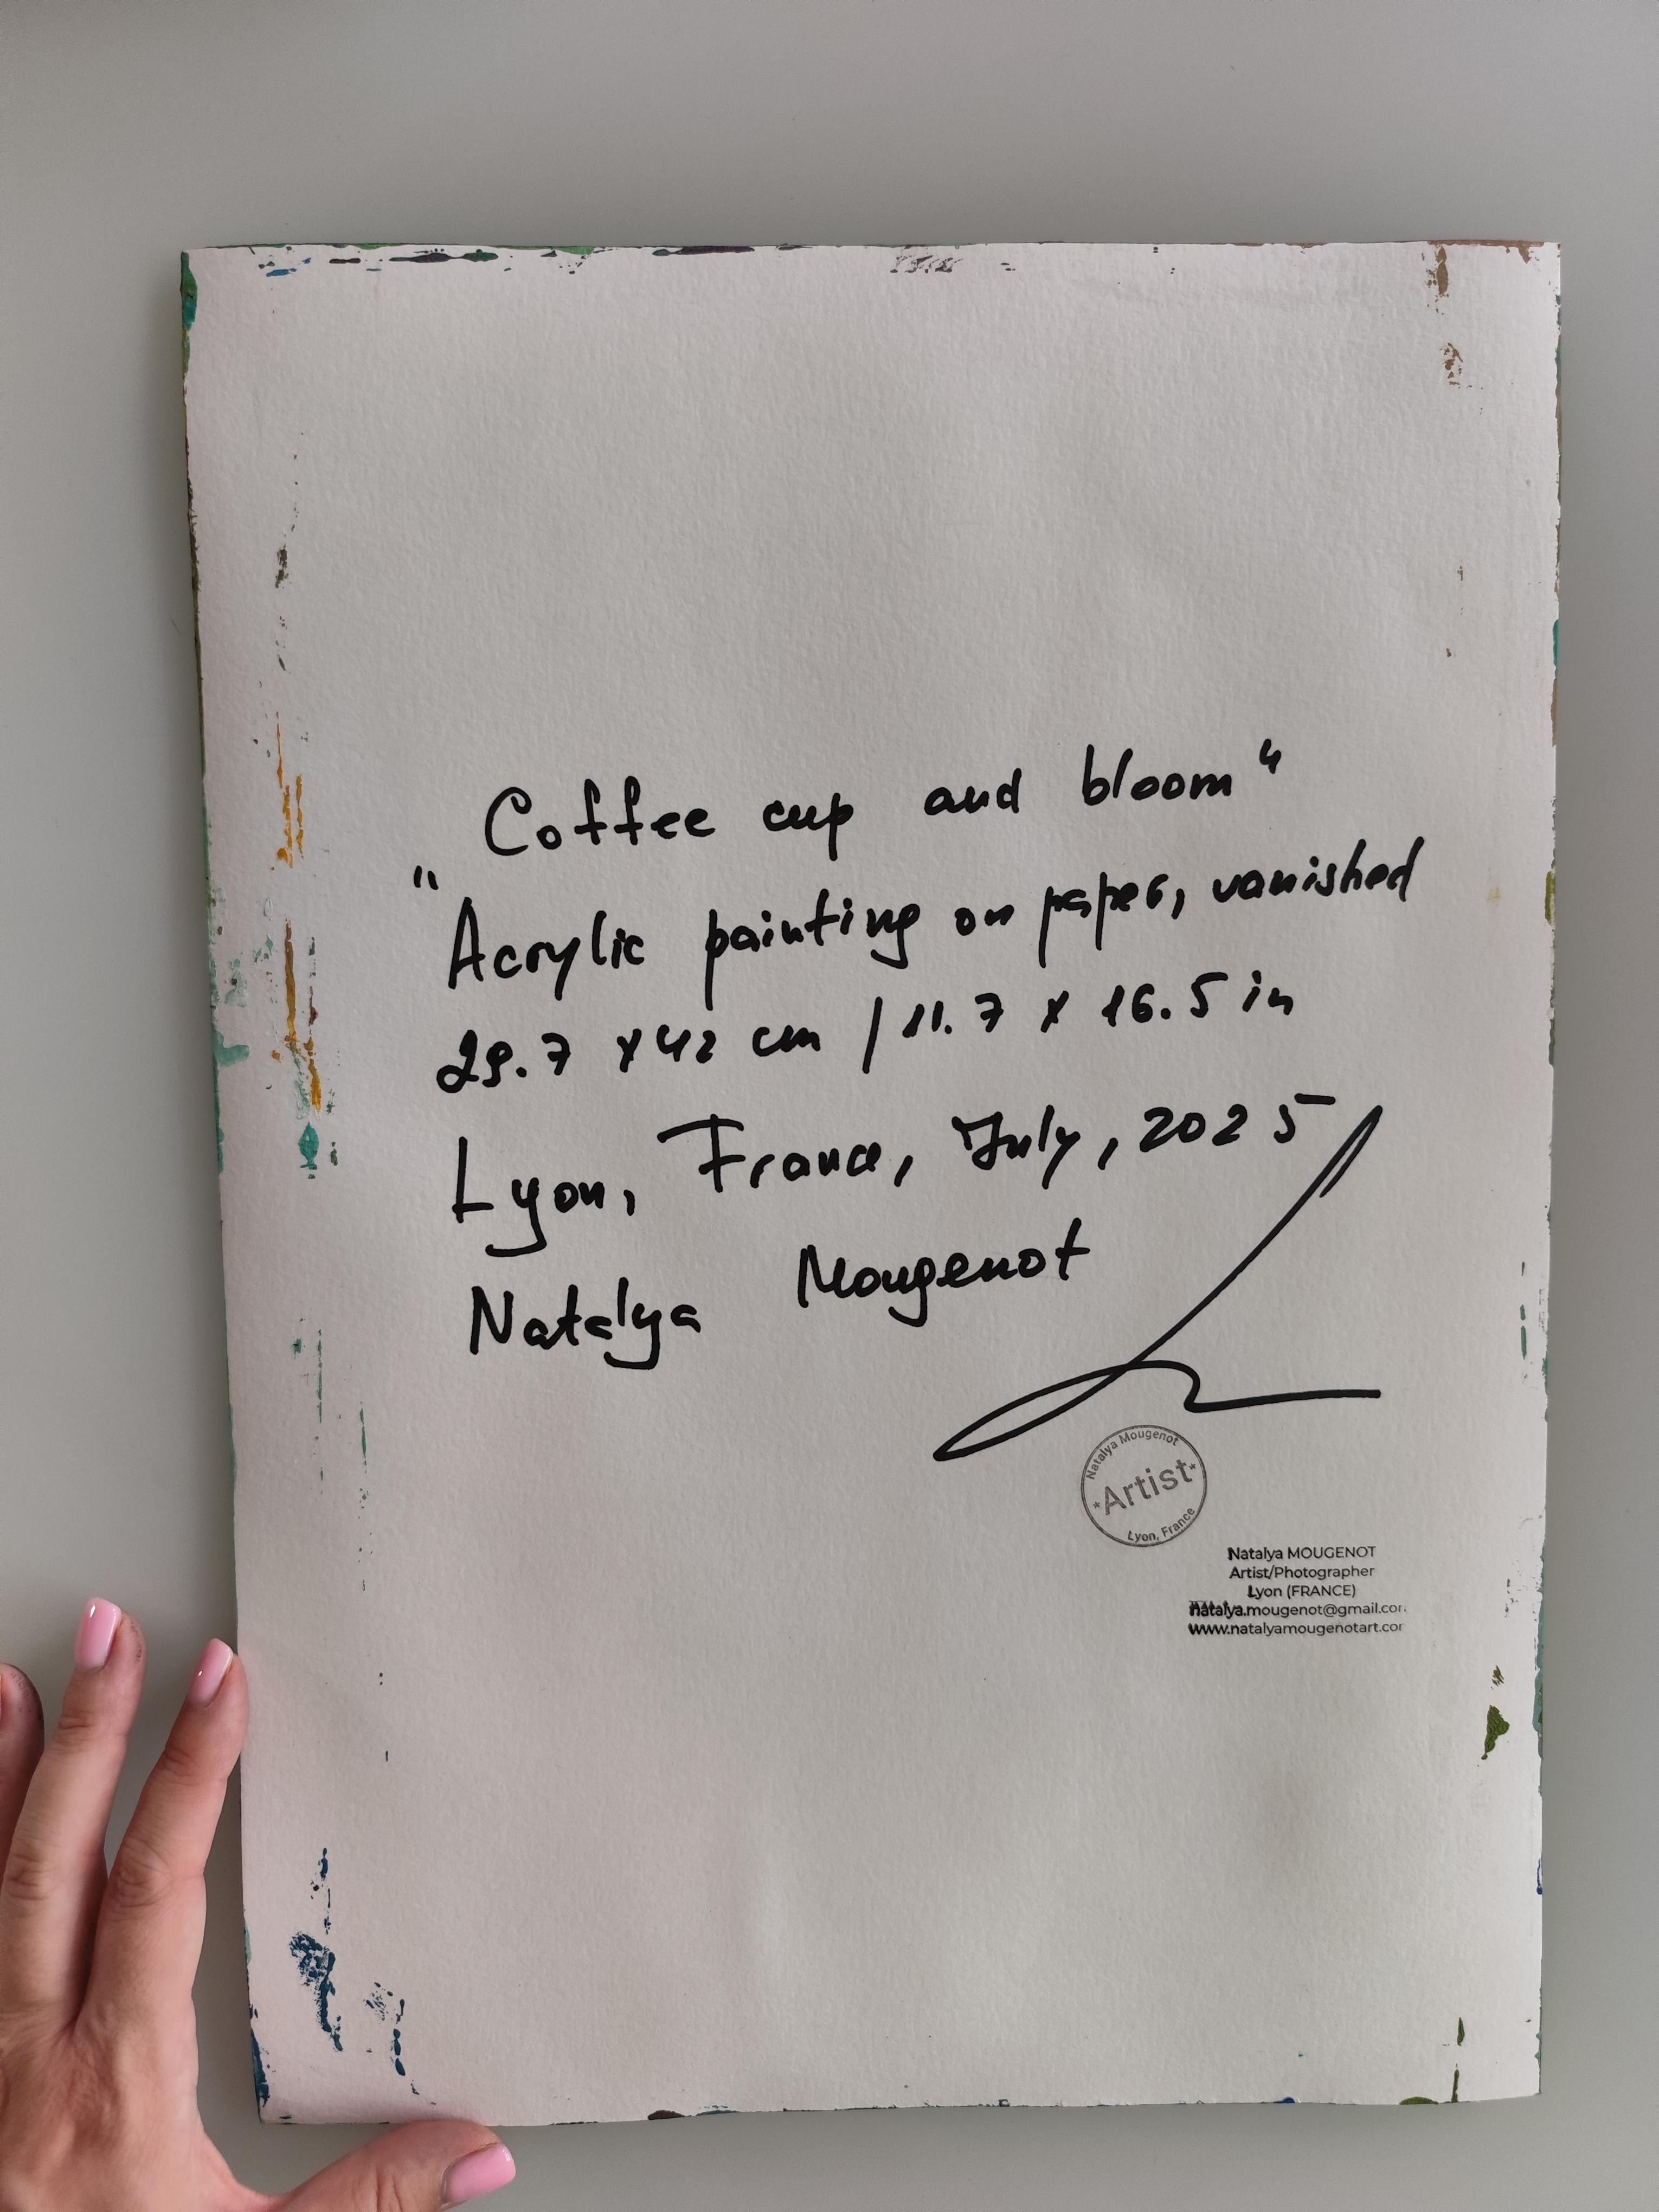 „Coffee cup and bloom“
Acrylic painting on paper, vanished
29.7 x 42 cm / 11.7 x 16.5 in
Lyon, France, July, 2025
Natalya Mougenot
Natalya Mougenot
*Artist*
Lyon, France
Natalya MOUGENOT
Artist/Photographer
Lyon (FRANCE)
natalya.mougenot@gmail.com
www.natalyamougenotart.cor